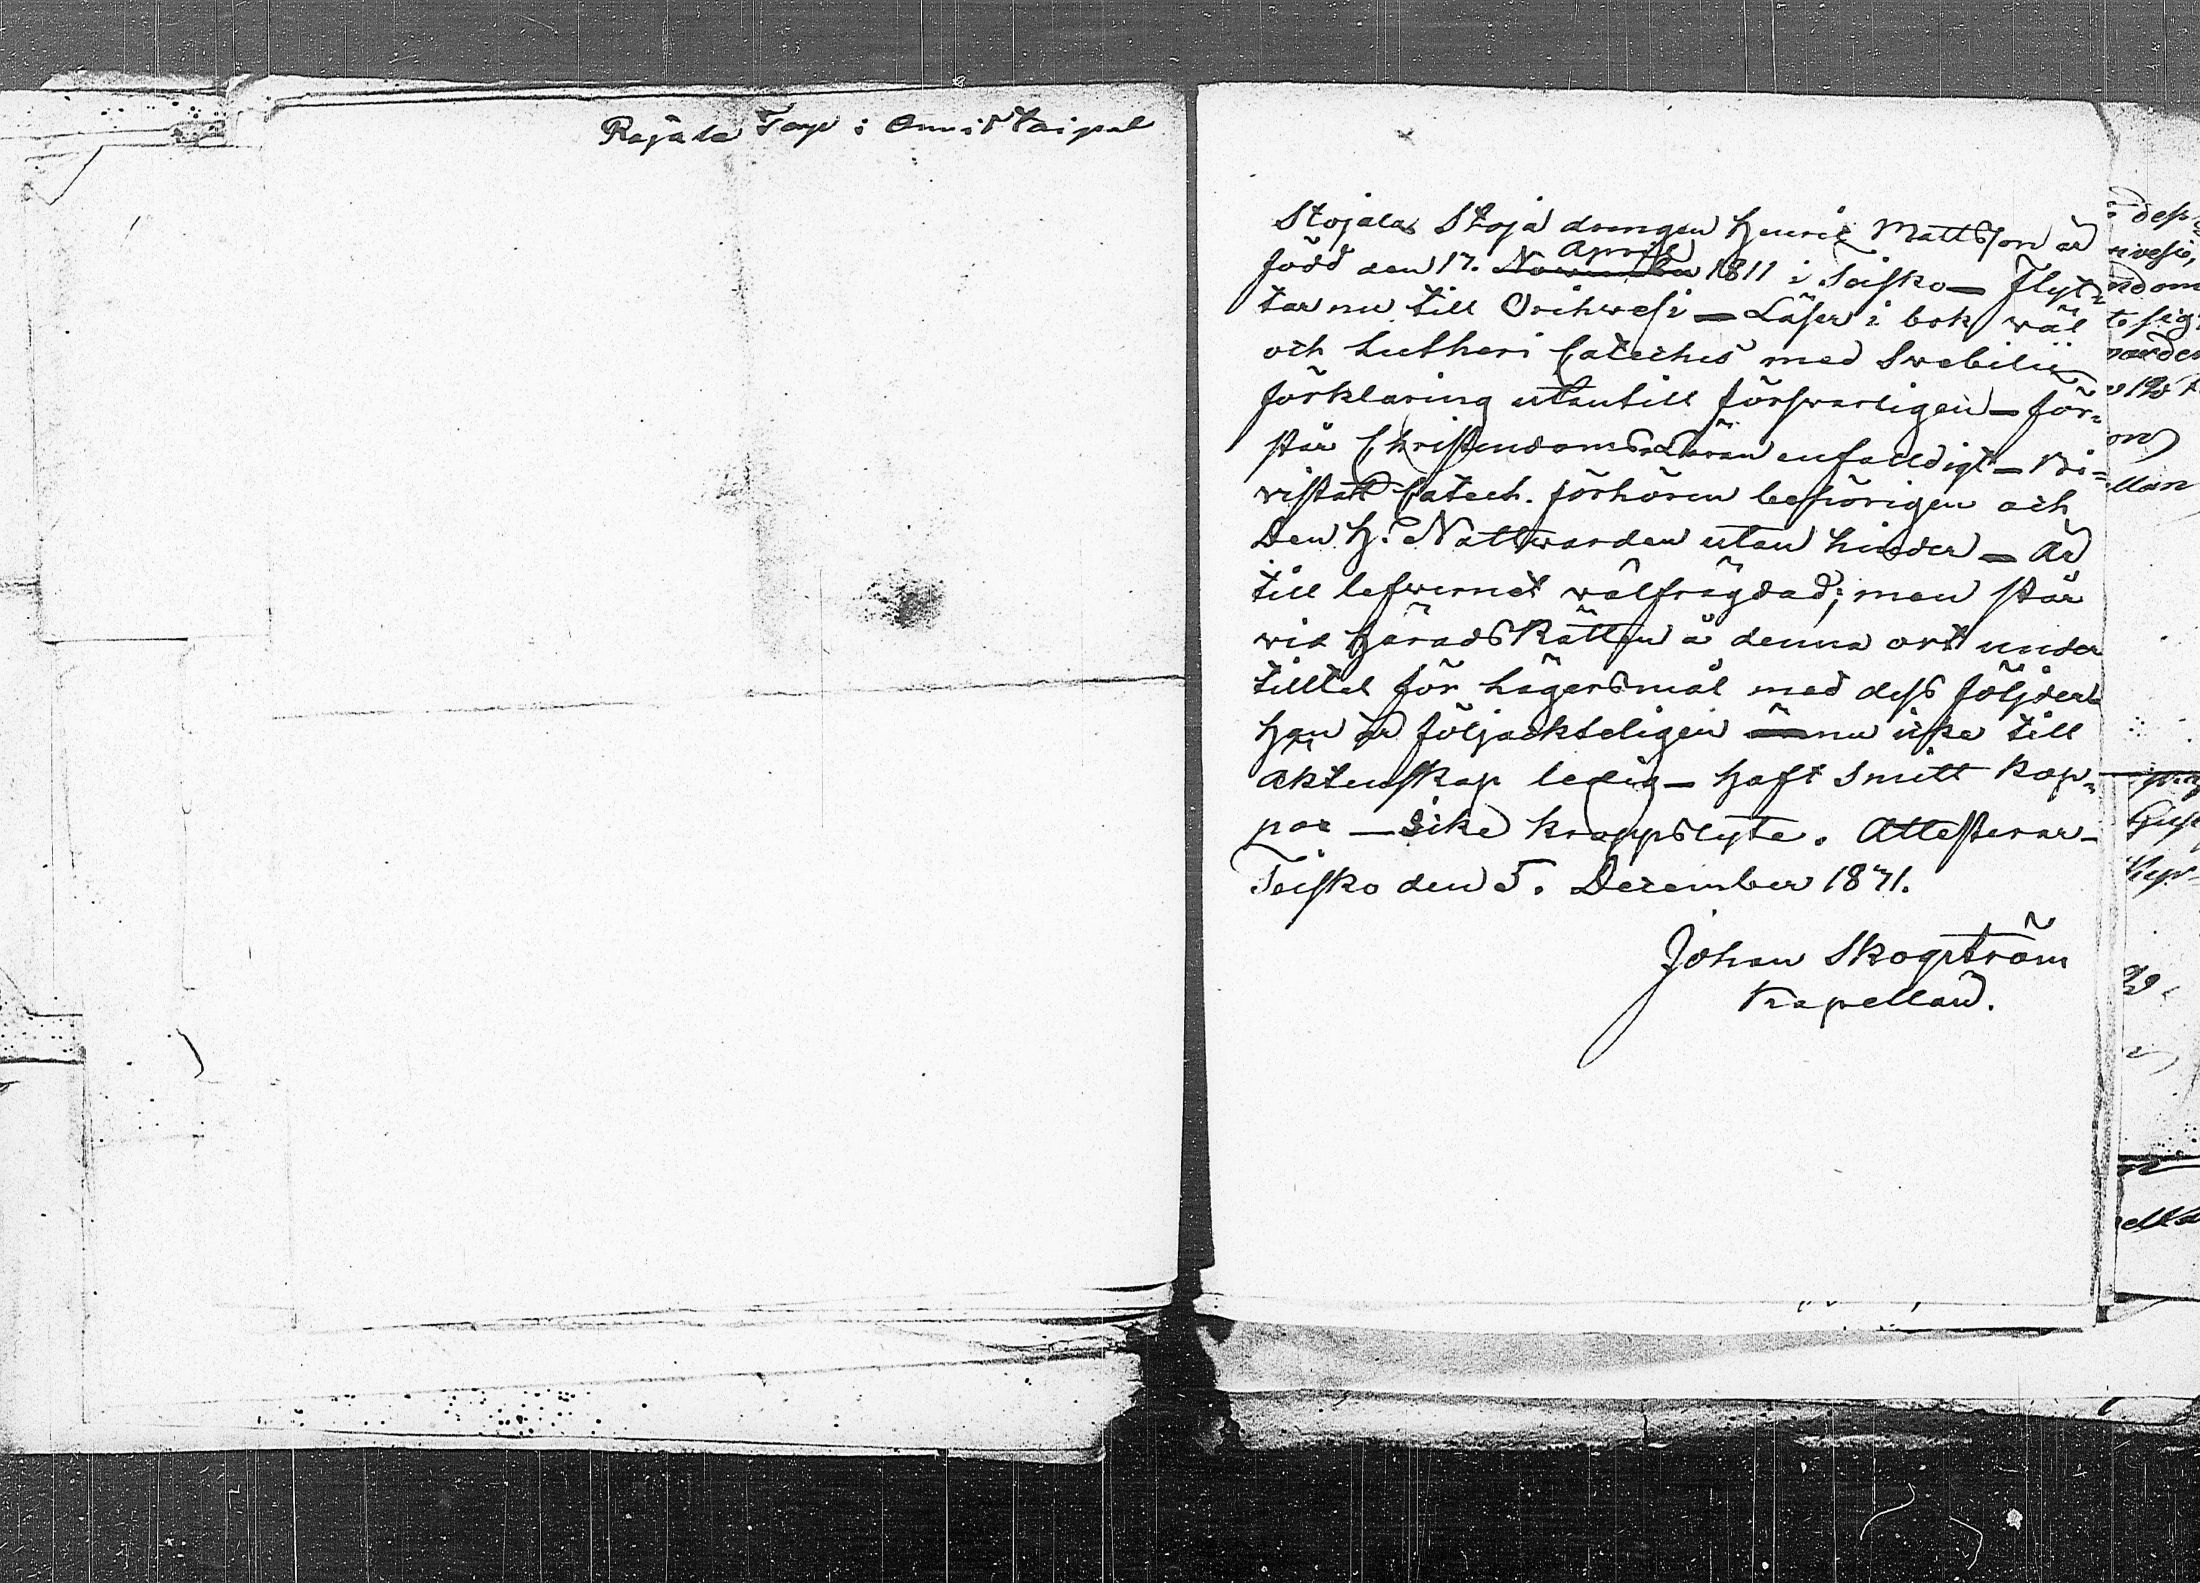 Rajala Torp i Onnistaipal
Stojala Stoja drengen Henric Mattsson är
född den 17. Novemb̶e̶r̶ April 1811 i Teisko – Flyt=
tar nu till Orihvesi – Läser i bok wäl
och Lutheri Cateches med Swebilii
förklaring utantill förswarligen – för=
står ChristendomsLäran enfaldigt – Bi=
vistat Catech. förhören behörigen och
Den H. Nattwarden utan hinder – Är
till lefwernet wälfrägdad; men står
vid HäradsRätten å denna ort under
tilltal för lägersmål med dess följder
Han är följackteligen nu icke till
Äktenskap ledig – Haft Smitt kop=
por – icke kroppslyte. Attesterar –
Teisko den 5. December 1871.
Johan Skogström
Kapellan.